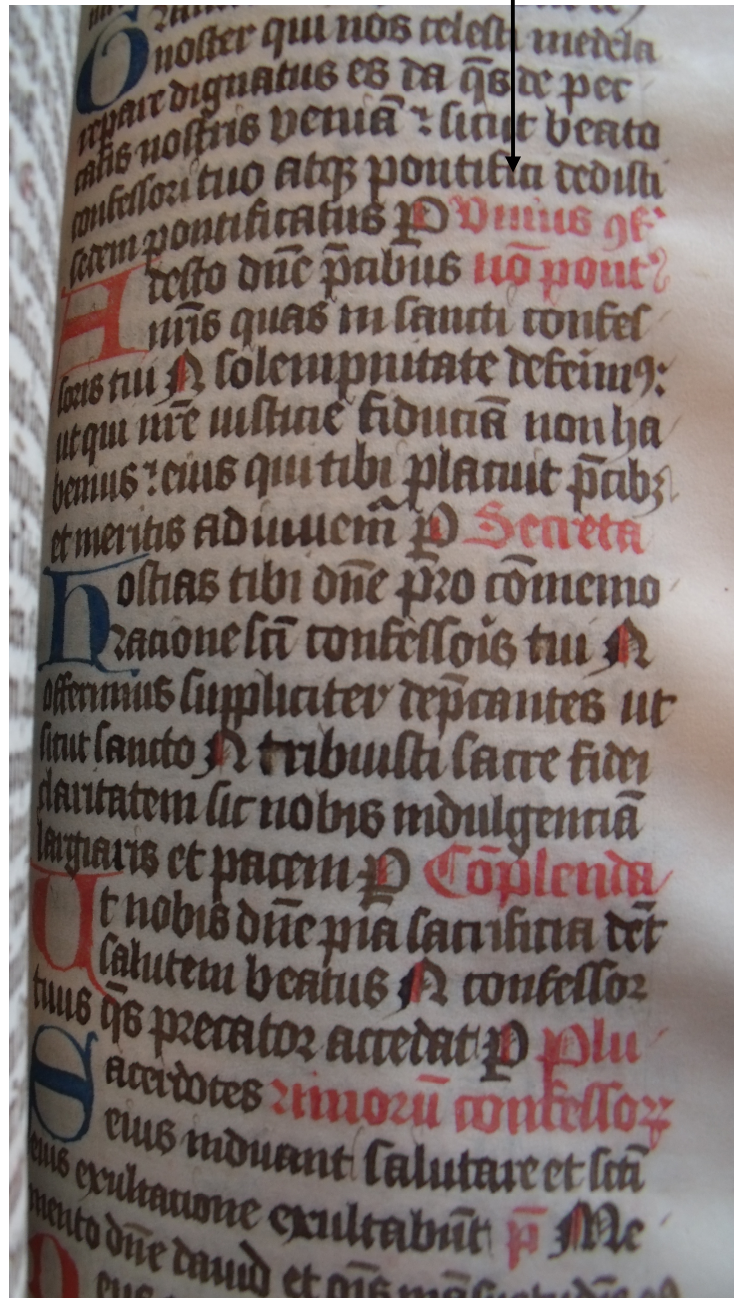 noster qui nos celesti medela
repare dignatus es da q̄s de pec
catis nostris veniā ⁊ sicut beato
confessori tuo atqꝫ pontifici dedisti
sedem pontificatus P Vnius 9f
Adesto dn̄e p̄cibus nō pont
nr̄is quas in sancti confes
soris tui N solempnitate deferim9:
ut qui nr̄e iusticie fiduciā non ha
bemus ⁊ eius qui tibi placuit p̄cibꝫ
et meritis adiuuem̄ P Secreta
Hostias tibi dn̄e pro cōmemo
racione sc̄i confessois tui N
offerimus suppliciter dep̄cantes ut
sicut sancto N tribuisti sacre fidei
claritatem sic nobis indulgenciā
largiaris et pacem P Cōplenda
Ut nobis dn̄e pia sacrificia det̄
salutem beatus N confessor
tuus q̄s precator accedat P Plu
Sacerdotes rimorū confessoꝝ
eius induant salutare et sc̄i
eius exultacione exultabūt p̄ Me
mento dn̄e dauid et